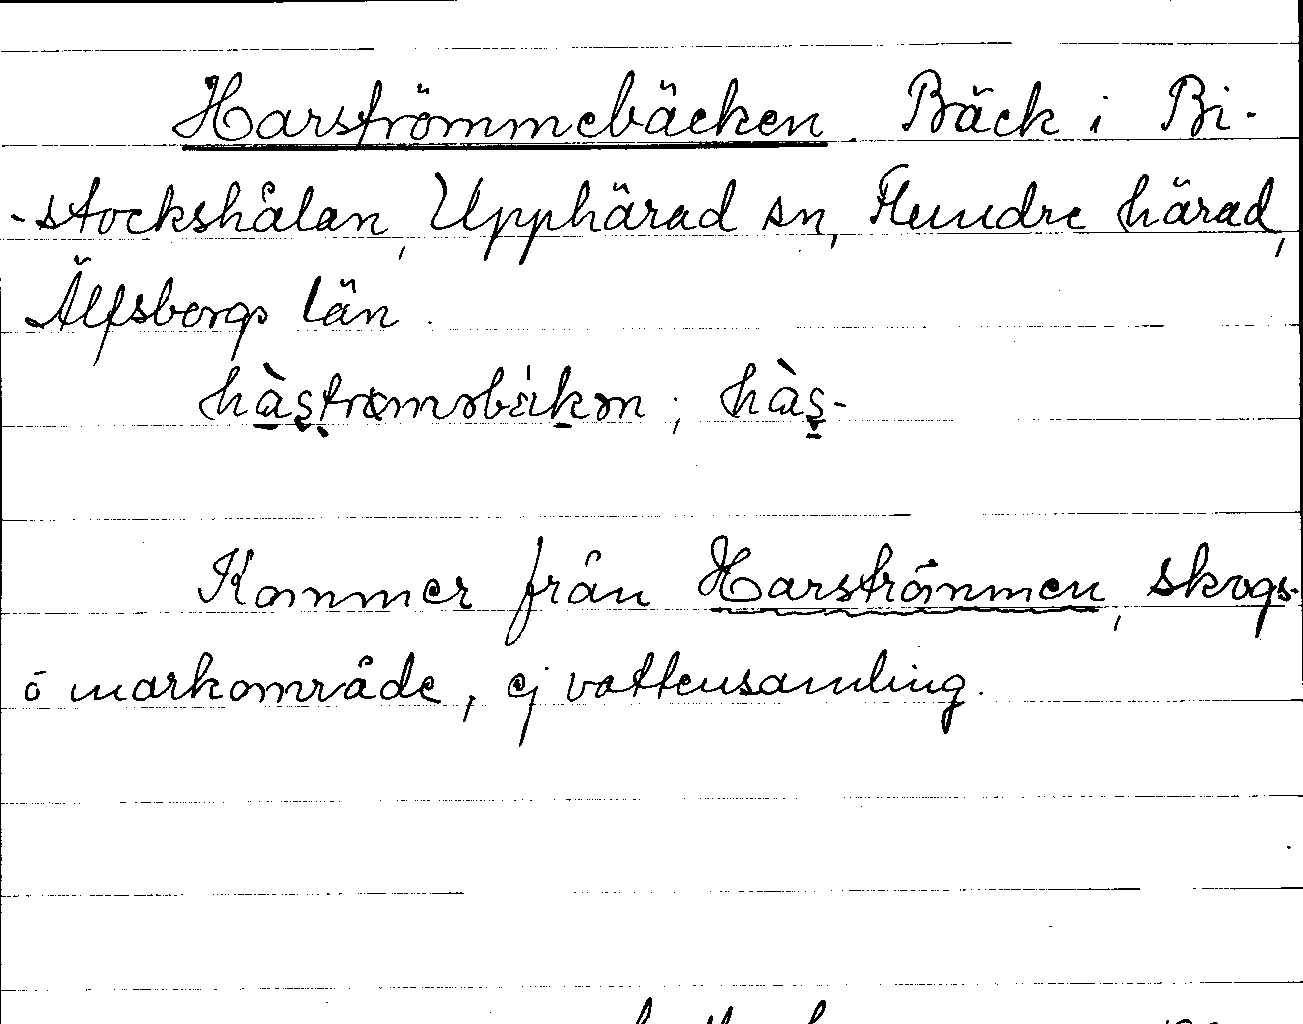 Harströmmebäcken. Bäck i Bi-
-stockshålan, Upphärad sn, Flundre härad,
Älfsborgs län.
hàs̱tromsbäkən ; hàs̱-
Kommer från Harströmmen, skogs-
o markområde, ej vattensamling.